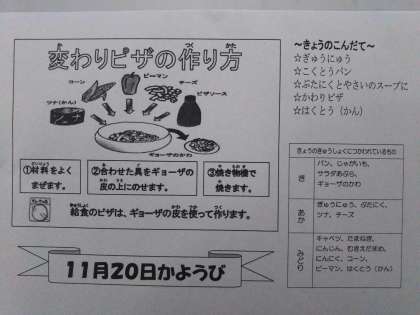 変わりピザの作り方
か
つく
かた
コーン
ピーマン
チーズ
ツナ(かん)
ツナ
ピザソース
ギョーザのかわ
①材料をよく
まぜます。
②合わせた具をギョーザの
皮の上にのせます。
③焼き物機で
焼きます。
給食のピザは、ギョーザの皮を使って作ります。
11月20日かようび
~きょうのこんだて~
☆ぎゅうにゅう
☆こくとうパン
☆ぶたにくとやさいのスープに
☆かわりピザ
☆はくとう(かん)
きょうのきゅうしょくにつかわれているもの
き
パン、じゃがいも、
サラダあぶら、
ギョーザのかわ
あか
ぎゅうにゅう、ぶたにく、
ツナ、チーズ
みどり
キャベツ、たまねぎ、
にんじん、むきえだまめ、
にんにく、コーン、
ピーマン、はくとう(かん)